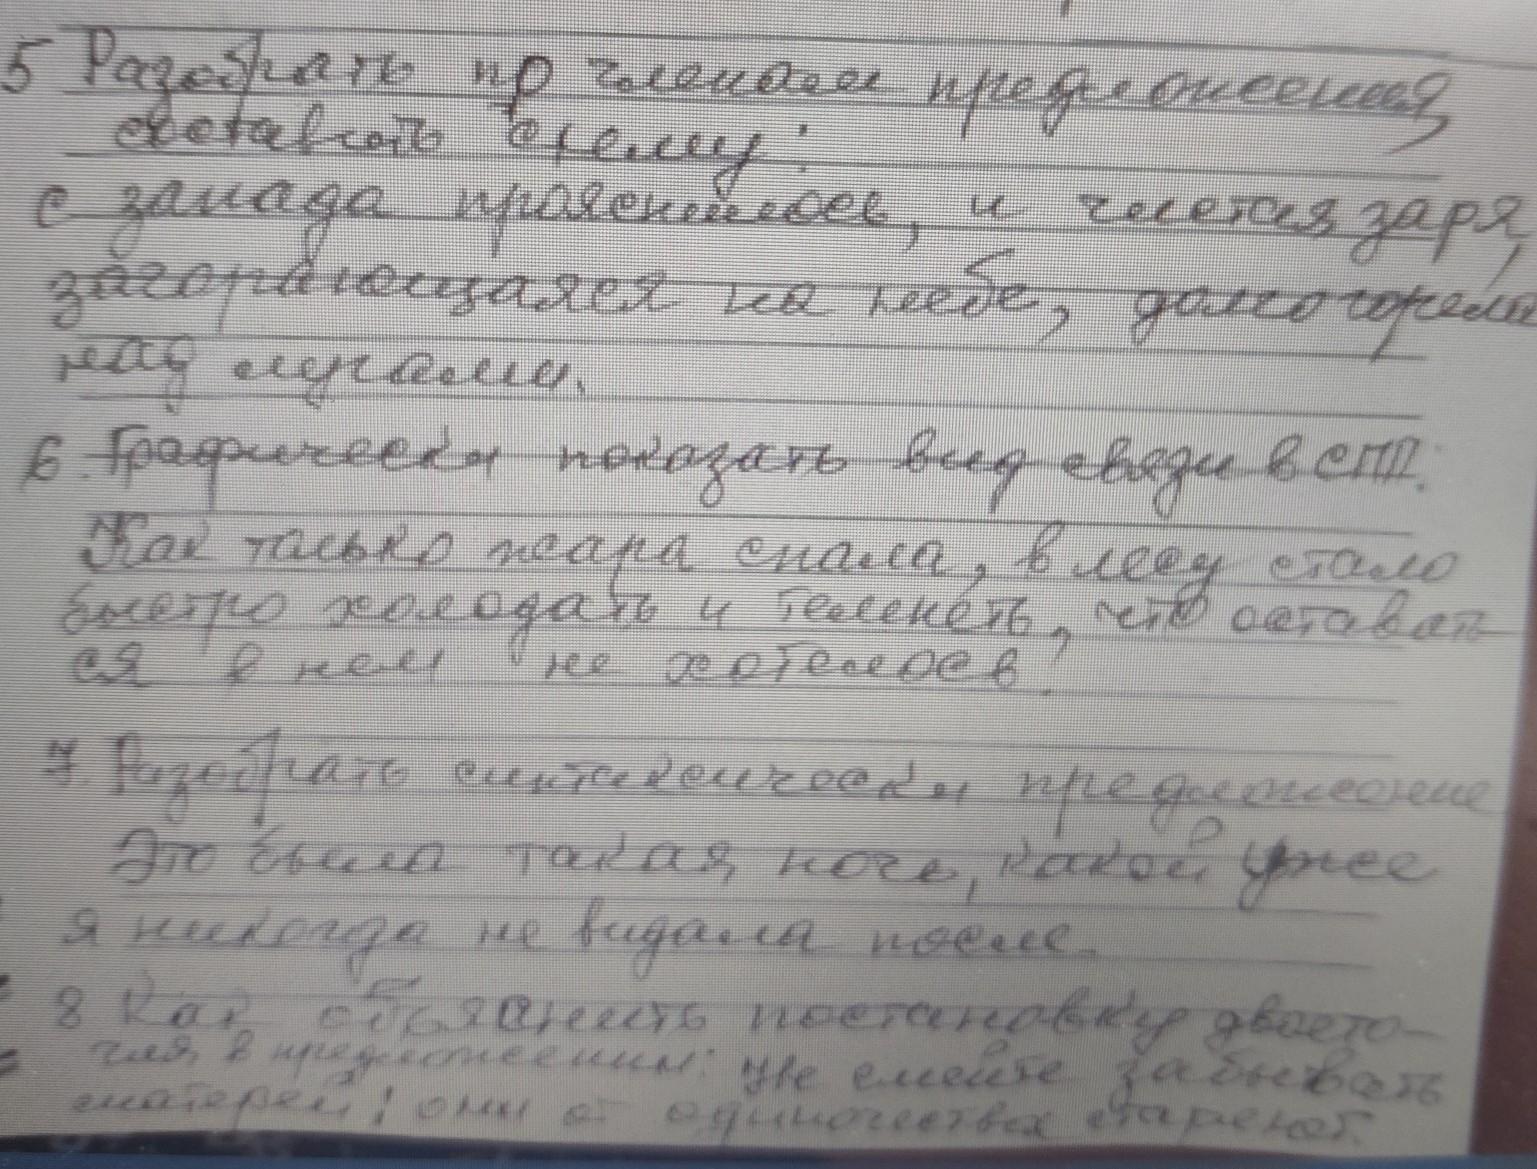 5 Разобрать по членам предложения,
составить схему:
с запада прояснилось, и чистая заря,
загоравшаяся на небе, долго горела
над лугами.
6. Графически показать вид связи в СПП.
Как только жара спала, в лесу стало
быстро холодать и темнеть, что оставать
ся в нем не хотелось.
7. Разобрать синтаксически предложение
Это была такая ночь, какой уже
я никогда не видала после.
8 Как объяснить постановку двоето-
чия в предложении: Не смейте забывать
матерей: они от одиночества стареют.